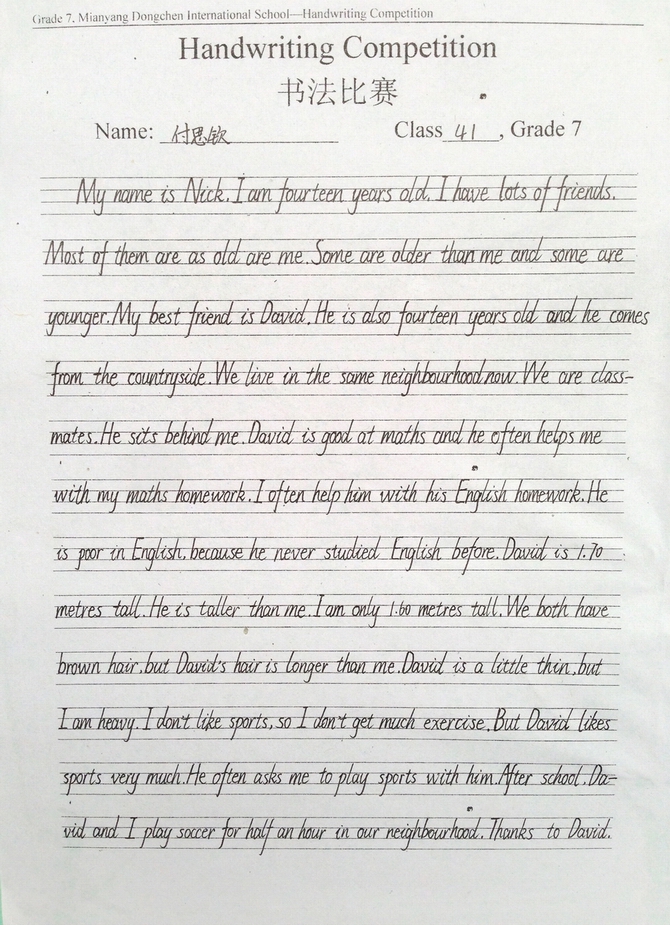 Grade 7, Mianyang Dongchen International School—Handwriting Competition
Handwriting Competition
书法比赛
Name: 付思钦 Class 41, Grade 7
My name is Nick. I am fourteen years old. I have lots of friends.
Most of them are as old are me. Some are older than me and some are
younger. My best friend is David. He is also fourteen years old and he comes
from the countryside. We live in the same neighbourhood now. We are class-
mates. He sits behind me. David is good at maths and he often helps me
with my maths homework. I often help him with his English homework. He
is poor in English, because he never studied English before. David is 1.70
metres tall. He is taller than me. I am only 1.60 metres tall. We both have
brown hair, but David's hair is longer than me. David is a little thin, but
I am heavy. I don't like sports, so I don't get much exercise. But David likes
sports very much. He often asks me to play sports with him. After school, Da-
vid and I play soccer for half an hour in our neighbourhood. Thanks to David.